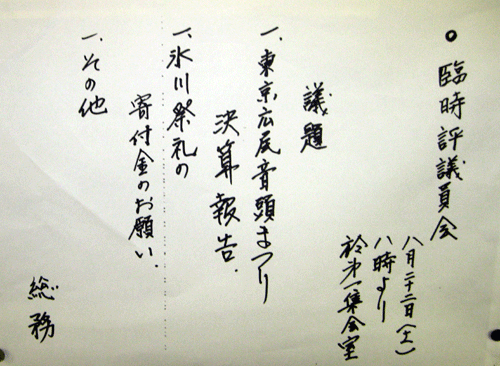 ○臨時評議員会
八月二十二日(土)
八時より
於第一集会室
議題
一、東京広尾音頭まつり
決算報告.
一、氷川祭礼の
寄付金のお願い.
一、その他
総務